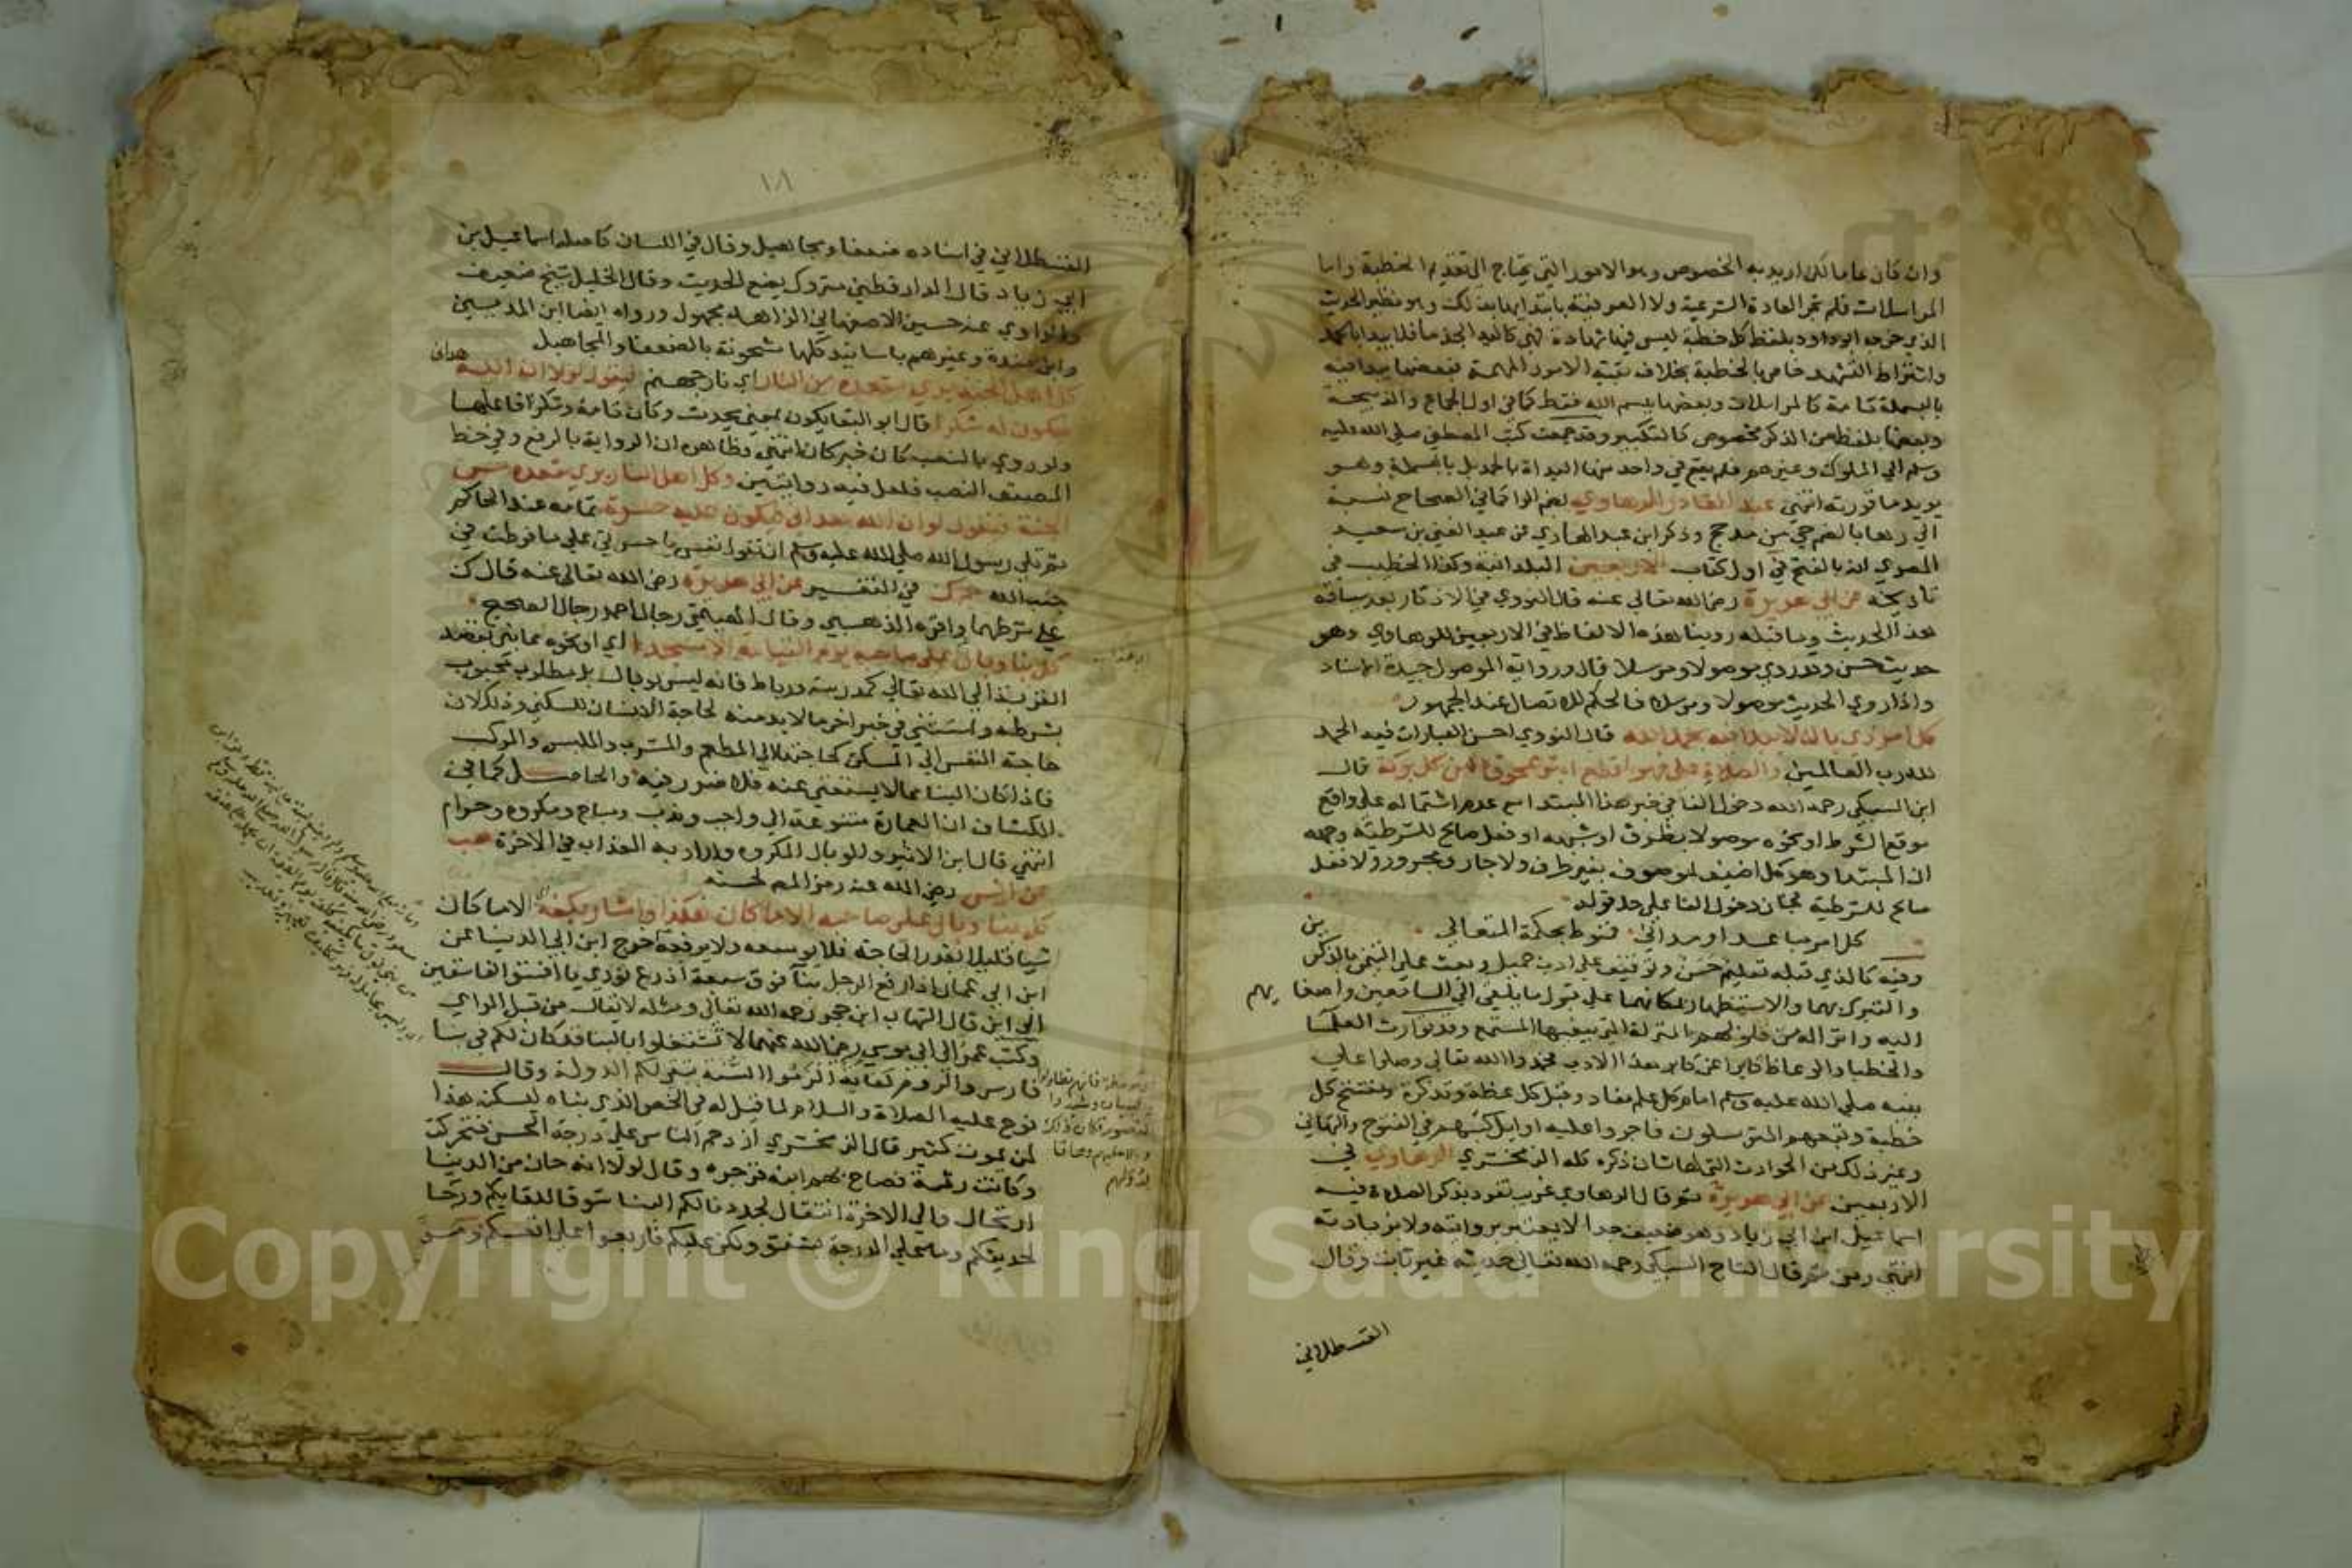 وان كان عاما لكن اريد به الخصوص وهو الامور التي تحتاج الى تقديم الخطبة واما
المراسلات فلم تجر العادة الشرعية ولا العرفية بابتدائها بذلك وهو نظير الحديث
الذي خرجه ابو داود بلفظ كل خطبة ليس فيها شهادة فهي كاليد الجذما فلا يبدا بالحمد
واشتراط التشهد خاص بالخطبة بخلاف بقية الامور المهمة فبعضها يبدا فيه
بالبسملة تامة كالمراسلات وبعضها ببسم الله فقط كما في اول الجماع والذبيحة
وبعضها بلفظ من الذكر مخصوص كالتكبير وقد جمعت كتب المصطفى صلى الله عليه
وسلم الى الملوك وغيرهم فلم يقع في واحد منها البداة بالحمد بل بالبسملة وهو
يويد ما قررته انتهى عبد القادر الرهاوي بضم الرا كما في الصحاح نسبة
الى رها بالضم حي من مدحج وذكر ابن عبد الهادي عن عبد الغني بن سعيد
المصري انه بالفتح في اول كتاب الاربعين البلدانية وكذا الخطيب في
تاريخه عن ابي هريرة رضى الله تعالى عنه قال النووي في الاذكار بعد سياقه
هذا الحديث وما قبله روينا هذه الالفاظ في الاربعين للرهاوي وهو
حديث حسن وقد روي موصولا ومرسلا قال ورواية الموصول جيدة الاسناد
واذا روي الحديث موصولا ومرسلا فالحكم للاتصال عند الجمهور
كل امر ذي بال لا يبدا فيه بحمد الله قال النووي احسن العبارات فيه الحمد
لله رب العالمين والصلاة علي فهو اقطع ابتر ممحوق من كل بركة قال
ابن السبكي رحمه الله دخول الفا في خبر هذا المبتدا مع عدم اشتماله على واقع
موقع الشرط او نحوه موصولا بظرف او شبهه او فعل صالح للشرطية وجهه
ان المبتدا وهو كل اضيف لموصوف بغير ظرف ولا جار ومجرور ولا فعل
صالح للشرطية فجاز دخول الفا على حد قوله
كل امر مباعد او مداني فنوط بحكمة المتعالي
وفيه كالذي قبله تعليم حسن وتوقيف على ادب جميل وبعث على التيمن بالذكرين
والتبرك بهما والاستظهار بمكانهما على قبول ما يلقى الى السامعين واصغائهم
اليه وانزاله من قلوبهم المنزلة التي يبغيها المستمع وقد توارث العلما
والخطبا والوعاظ كابرا عن كابر هذا الادب فحمدوا الله تعالى وصلوا على
نبيه صلى الله عليه وسلم امام كل علم مفاد وقبل كل عظة وتذكرة ومفتتح كل
خطبة وتبعهم المترسلون فاجروا عليه اوايل كتبهم في الفتوح والتهاني
وغير ذلك من الحوادث التي لها شان ذكره كله الزمخشري الرهاوي في
الاربعين عن ابي هريرة ثم قال الرهاوي غريب تفرد بذكر الصلاة فيه
اسماعيل ابن ابي زياد وهو ضعيف جدا لا يعتبر بروايته ولا بزيادته
انتهى ومن ثم قال التاج السبكي رحمه الله تعالى حديثه غير ثابت وقال
القسطلاني
١٨
القسطلاني في اسناده ضعفا ومجاهيل وقال في اللسان كاصله اسماعيل بن
ابي زياد قال الدارقطني متروك يضع الحديث وقال الخليلي شيخ ضعيف
والراوي عنه حسين الاصفهاني الزاهد مجهول ورواه ايضا ابن المديني
وابن مندة وغيرهم باسانيد كلها مشحونة بالضعفا والمجاهيل
كل اهل الجنة يرى مقعده من النار اي نار جهنم فيقول لولا ان الله هداني
فيكون له شكرا قال ابو البقا يكون بمعنى يحدث وكان تامة وشكرا فاعلها
ولو روي بالنصب كان خبر كان انتهى وظاهره ان الرواية بالرفع وفي خط
المصنف النصب فلعل فيه روايتين وكل اهل النار يرى مقعده من
الجنة فيقول لو ان الله هداني فيكون عليه حسرة تمامه عند الحاكم
ثم تلى رسول الله صلى الله عليه وسلم ان تقول نفس يا حسرتى على ما فرطت في
جنب الله حم ك في التفسير عن ابي هريرة رضى الله تعالى عنه قال ك
على شرطهما واقره الذهبي وقال الهيثمي رجال احمد رجال الصحيح
كل بنا وبال على صاحبه يوم القيامة الا مسجدا اي او نحوه مما بني بقصد
القربة الى الله تعالى كمدرسة ورباط فانه ليس بوبال بل مطلوب محبوب
بشرطه واستثني في خبر اخر ما لا بد منه لحاجة الانسان للسكني وذلك لان
حاجة النفس الى المسكن كحاجتها الى المطعم والمشرب والملبس والمركب
فاذا كان البنا مما لا يستغني عنه فلا ضرر فيه والحاصل كما في
الكشاف ان العمارة متنوعة الى واجب وندب ومباح ومكروه وحرام
انتهى قال ابن الاثير والوبال المكروه واراد به العذاب في الاخرة هب
عن انس رضى الله عنه رمز المص لحسنه
كل بنا وبال على صاحبه الا ما كان هكذا واشار بكفه اي الا ما كان
شيا قليلا بقدر الحاجة فلا يوسعه ولا يرفعه اخرج ابن ابي الدنيا عن
ابن ابي عمار اذا رفع الرجل بنا فوق سبعة اذرع نودي يا افسق الفاسقين
الى اين قال الشهاب ابن حجر رحمه الله تعالى ومثله لا يقال من قبل الراي
وكتب عمر الى ابي موسى رضى الله عنهما لا تشتغلوا بالبنا قد كان لكم في بنا
فارس والروم كفاية الزموا السنة تبقى لكم الدولة وقال
نوح عليه الصلاة والسلام لما قيل له في الخص الذي بناه ليسكن هذا
لمن يموت كثير قال الزمخشري ازدحم الناس على درجة الحسن فتحركت
وكانت رثة فصاح بهم ابنه فزجره وقال لولا انه حان من الدنيا
ارتحال والى الاخرة انتقال لجددنا لكم البنا شوقا للقايكم ورجا
لحديثكم وما على الدرجة نشفق ولكن عليكم فاربعوا على انفسكم
Copyright © King Saud University